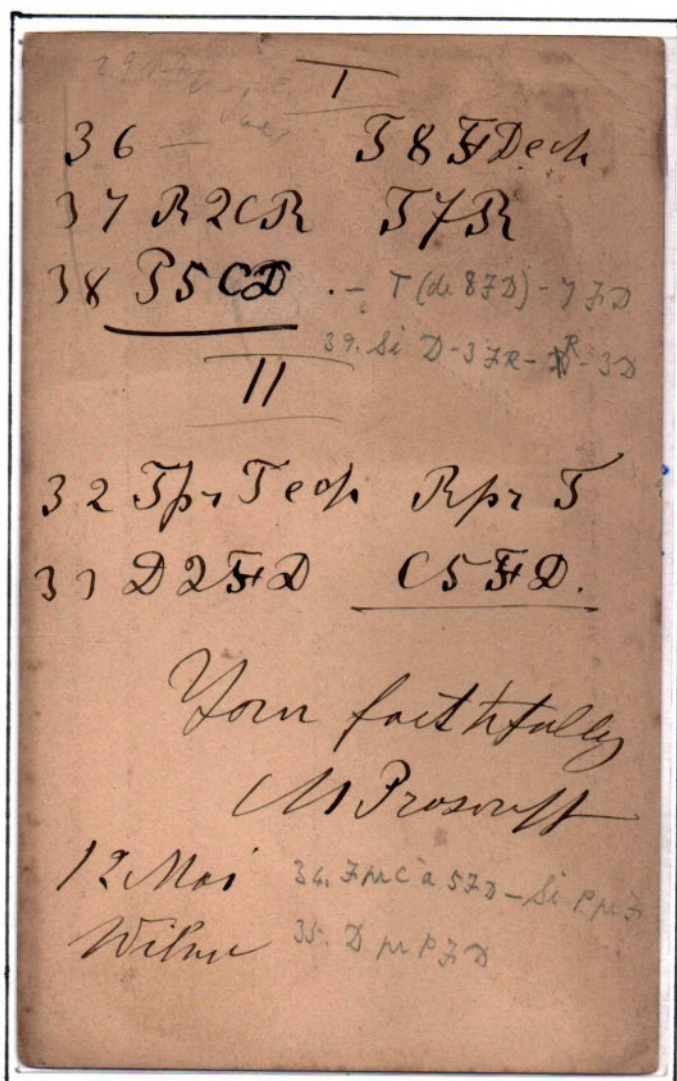 I
36 — T8FDech
37 R2CR T7R
38 P5CD .- T (de 8FD) - 7FD
39. Si D-3FR - R-3D
II
32 Tpr Tech Rpr T
33 D2FD C5FD.
Your faithfully
12 Mai 34. F pr C à 5FD - Si P pr F
35. D pr P FD